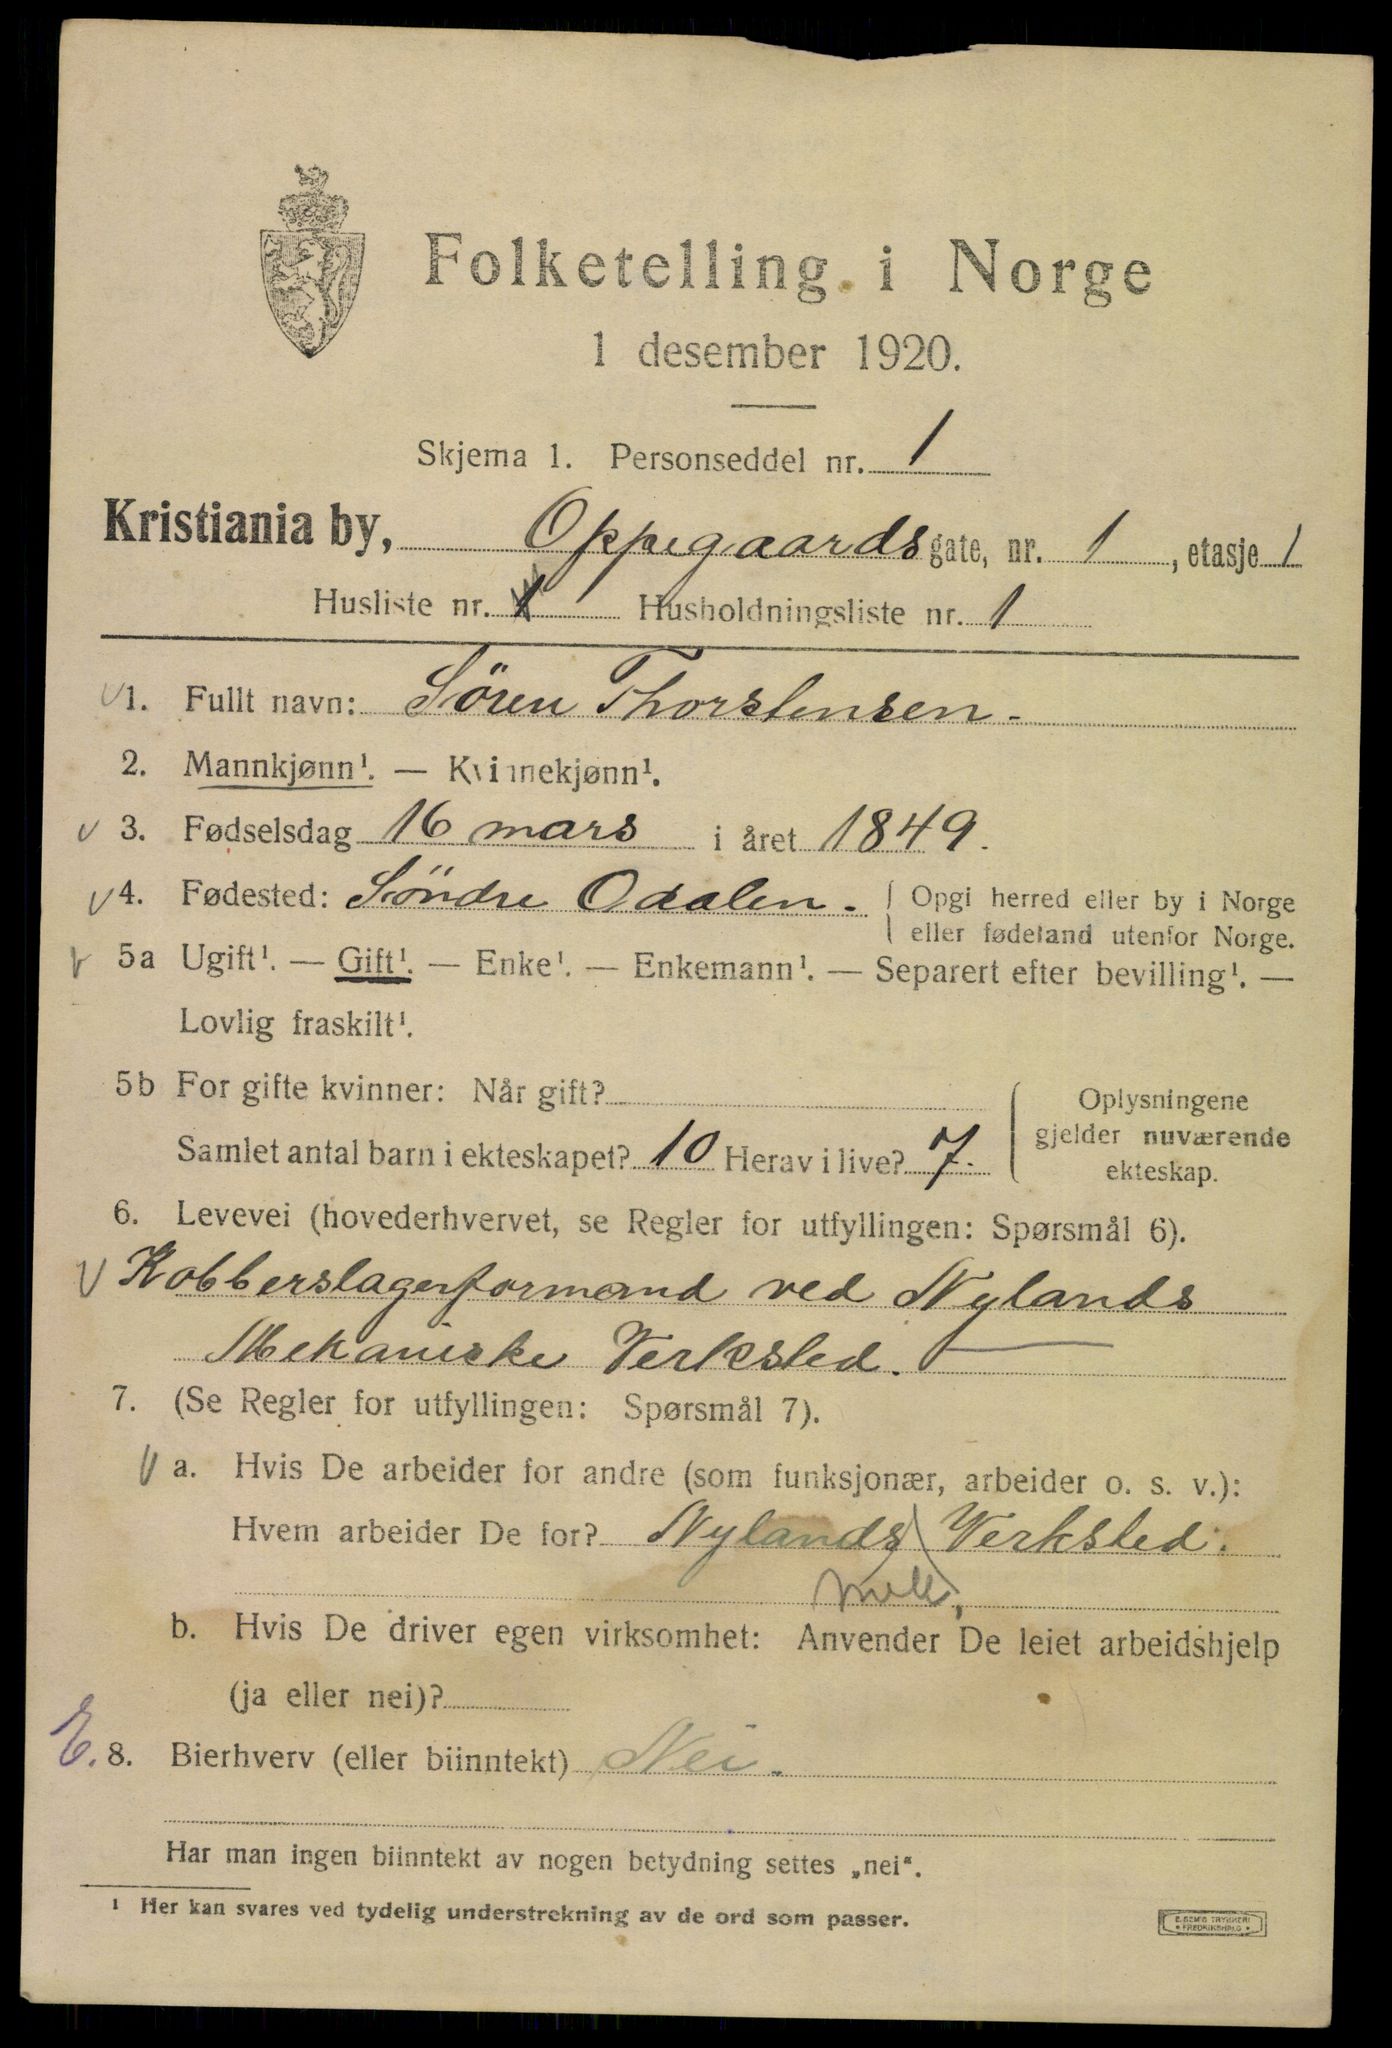 Folketelling i Norge
1 desember 1920.
Skjema 1. Personseddel nr. 1
Kristiania by, Oppegaards gate, nr. 1, etasje 1
Husliste nr. 1 Husholdningsliste nr. 1
1. Fullt navn: Sören Thorstensen.
2. Mannkjønn¹. — Kvinnekjønn¹.
3. Fødselsdag 16 mars i året 1849.
4. Fødested: Söndre Odalen. Opgi herred eller by i Norge
eller fødeland utenfor Norge.
5a Ugift¹. — Gift¹. — Enke¹. — Enkemann¹. — Separert efter bevilling¹. —
Lovlig fraskilt¹.
5b For gifte kvinner: Når gift?
Samlet antal barn i ekteskapet? 10 Herav i live? 7.
Oplysningene
gjelder nuværende
ekteskap.
6. Levevei (hovederhvervet, se Regler for utfyllingen: Spørsmål 6).
Kobberslagerformand ved Nylands
Mekaniske Verksted.
7. (Se Regler for utfyllingen: Spørsmål 7).
a. Hvis De arbeider for andre (som funksjonær, arbeider o. s. v.):
Hvem arbeider De for? Nylands Verksted.
b. Hvis De driver egen virksomhet: Anvender De leiet arbeidshjelp
(ja eller nei)?
E. 8. Bierhverv (eller biinntekt) Nei.
Har man ingen biinntekt av nogen betydning settes „nei“.
¹ Her kan svares ved tydelig understrekning av de ord som passer.
E. SEM'S TRYKKERI
• FREDRIKSHALD •